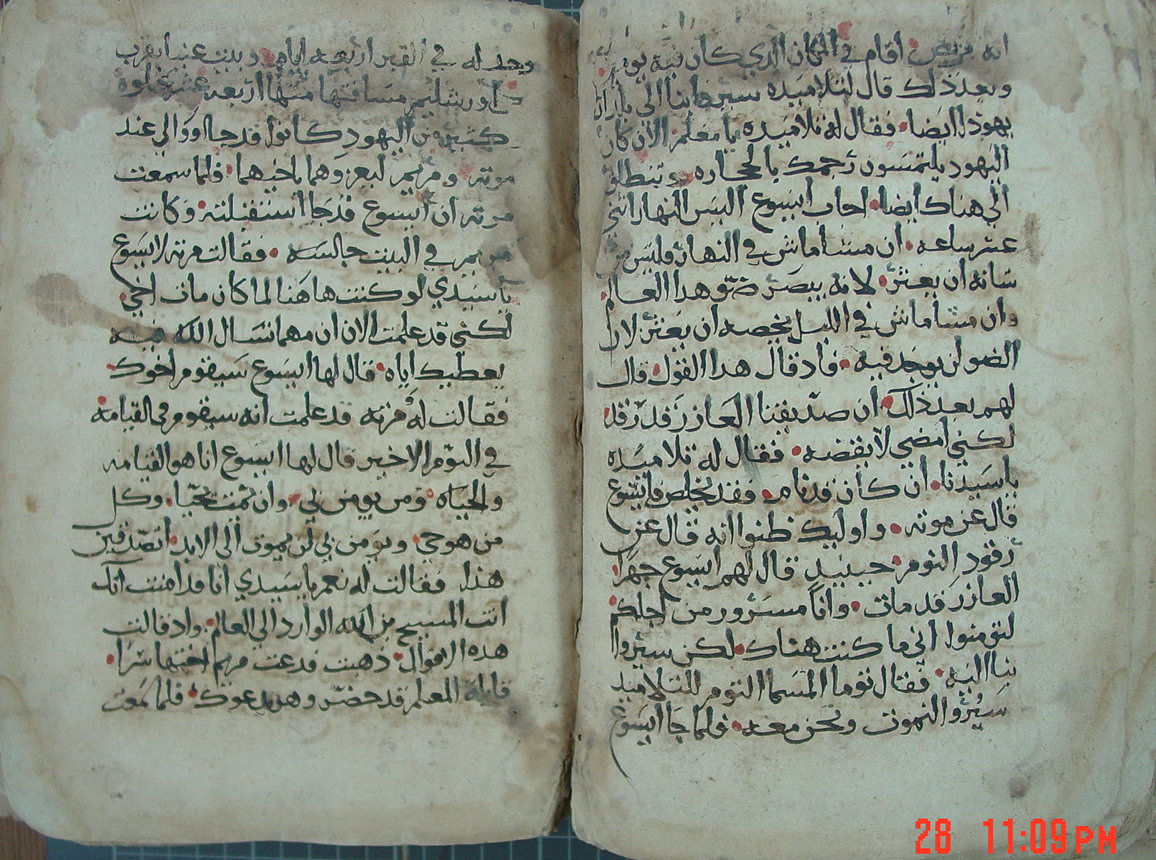 انه مريض اقام في المكان الدي كان فيه يومين
وبعد ذلك قال لتلاميده سيروا بنا الى بلد
يهودا ايضا • فقال له تلاميده يا معلم الان كان
اليهود يلتمسون رجمك بالحجاره • وتنطلق
الي هناك ايضا • اجاب ايسوع اليس النهار اثني
عشر ساعه • ان مشا ماش في النهار فليس من
شانه ان يعتر • لانه يبصر ضو هدا العالم
وان مشا ماش في الليل يخصه ان يعتر لان
الضو لن يوجد فيه • فاد قال هدا القول • قال
لهم بعد ذلك • ان صديقنا العازر قد رقد
لكني امضي لايقضه • فقال له تلاميده
ياسيدنا • ان كان قد نام • فقد يخلص وايسوع
قال عن موته • واوليك ظنوا انه قال عن
رقود النوم • حينيد قال لهم ايسوع جهرا •
العازر قد مات • وانا مسرور من اجلكم
لتومنوا اني ما كنت هناك • لكن سيروا
بنا اليه • فقال توما المسما التوم للتلاميد
سيروا لنموت ونحن معه • فلما جا ايسوع
وجد له في القبر اربعه ايام • وبيت عنيا بقرب
اورشليم مسافتها منها اربعه عشر غلوه
كتير من اليهود كانوا قد جاووا الي عند
مرته ومريم ليعزوهما باخيهما • فلما سمعت
مرته ان ايسوع قد جا استقبلته • وكانت
مريم في البيت جالسه • فقالت مرته لايسوع
ياسيدي لو كنت هاهنا لما كان مات اخي
لكني قد علمت الان ان مهما تسال الله فيه
يعطيك اياه • قال لها ايسوع سيقوم اخوك
فقالت له مرته قد علمت انه سيقوم في القيامه
في اليوم الاخير قال لها ايسوع انا هو القيامه
والحياه • ومن يومن بي • وان يمت يحيا • وكل
من هو حي • ويومن بي لن يموت الي الابد • اتصدقين
هذا فقالت له نعم ياسيدي انا قد امنت انك
انت المسيح بن الله الوارد الي العالم • واد قالت
هده الاقوال • ذهبت فدعت مريم اختها سرا •
قايله المعلم قد حضر وهو يدعوك • فلما سمعت
28 11:09 PM